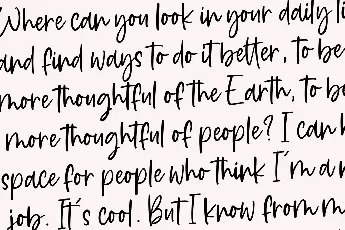 Where can you look in your daily li
and find ways to do it better, to be
more thoughtful of the Earth, to b
more thoughtful of people? I can h
space for people who think I'm a n
job. It's cool. But I know from m